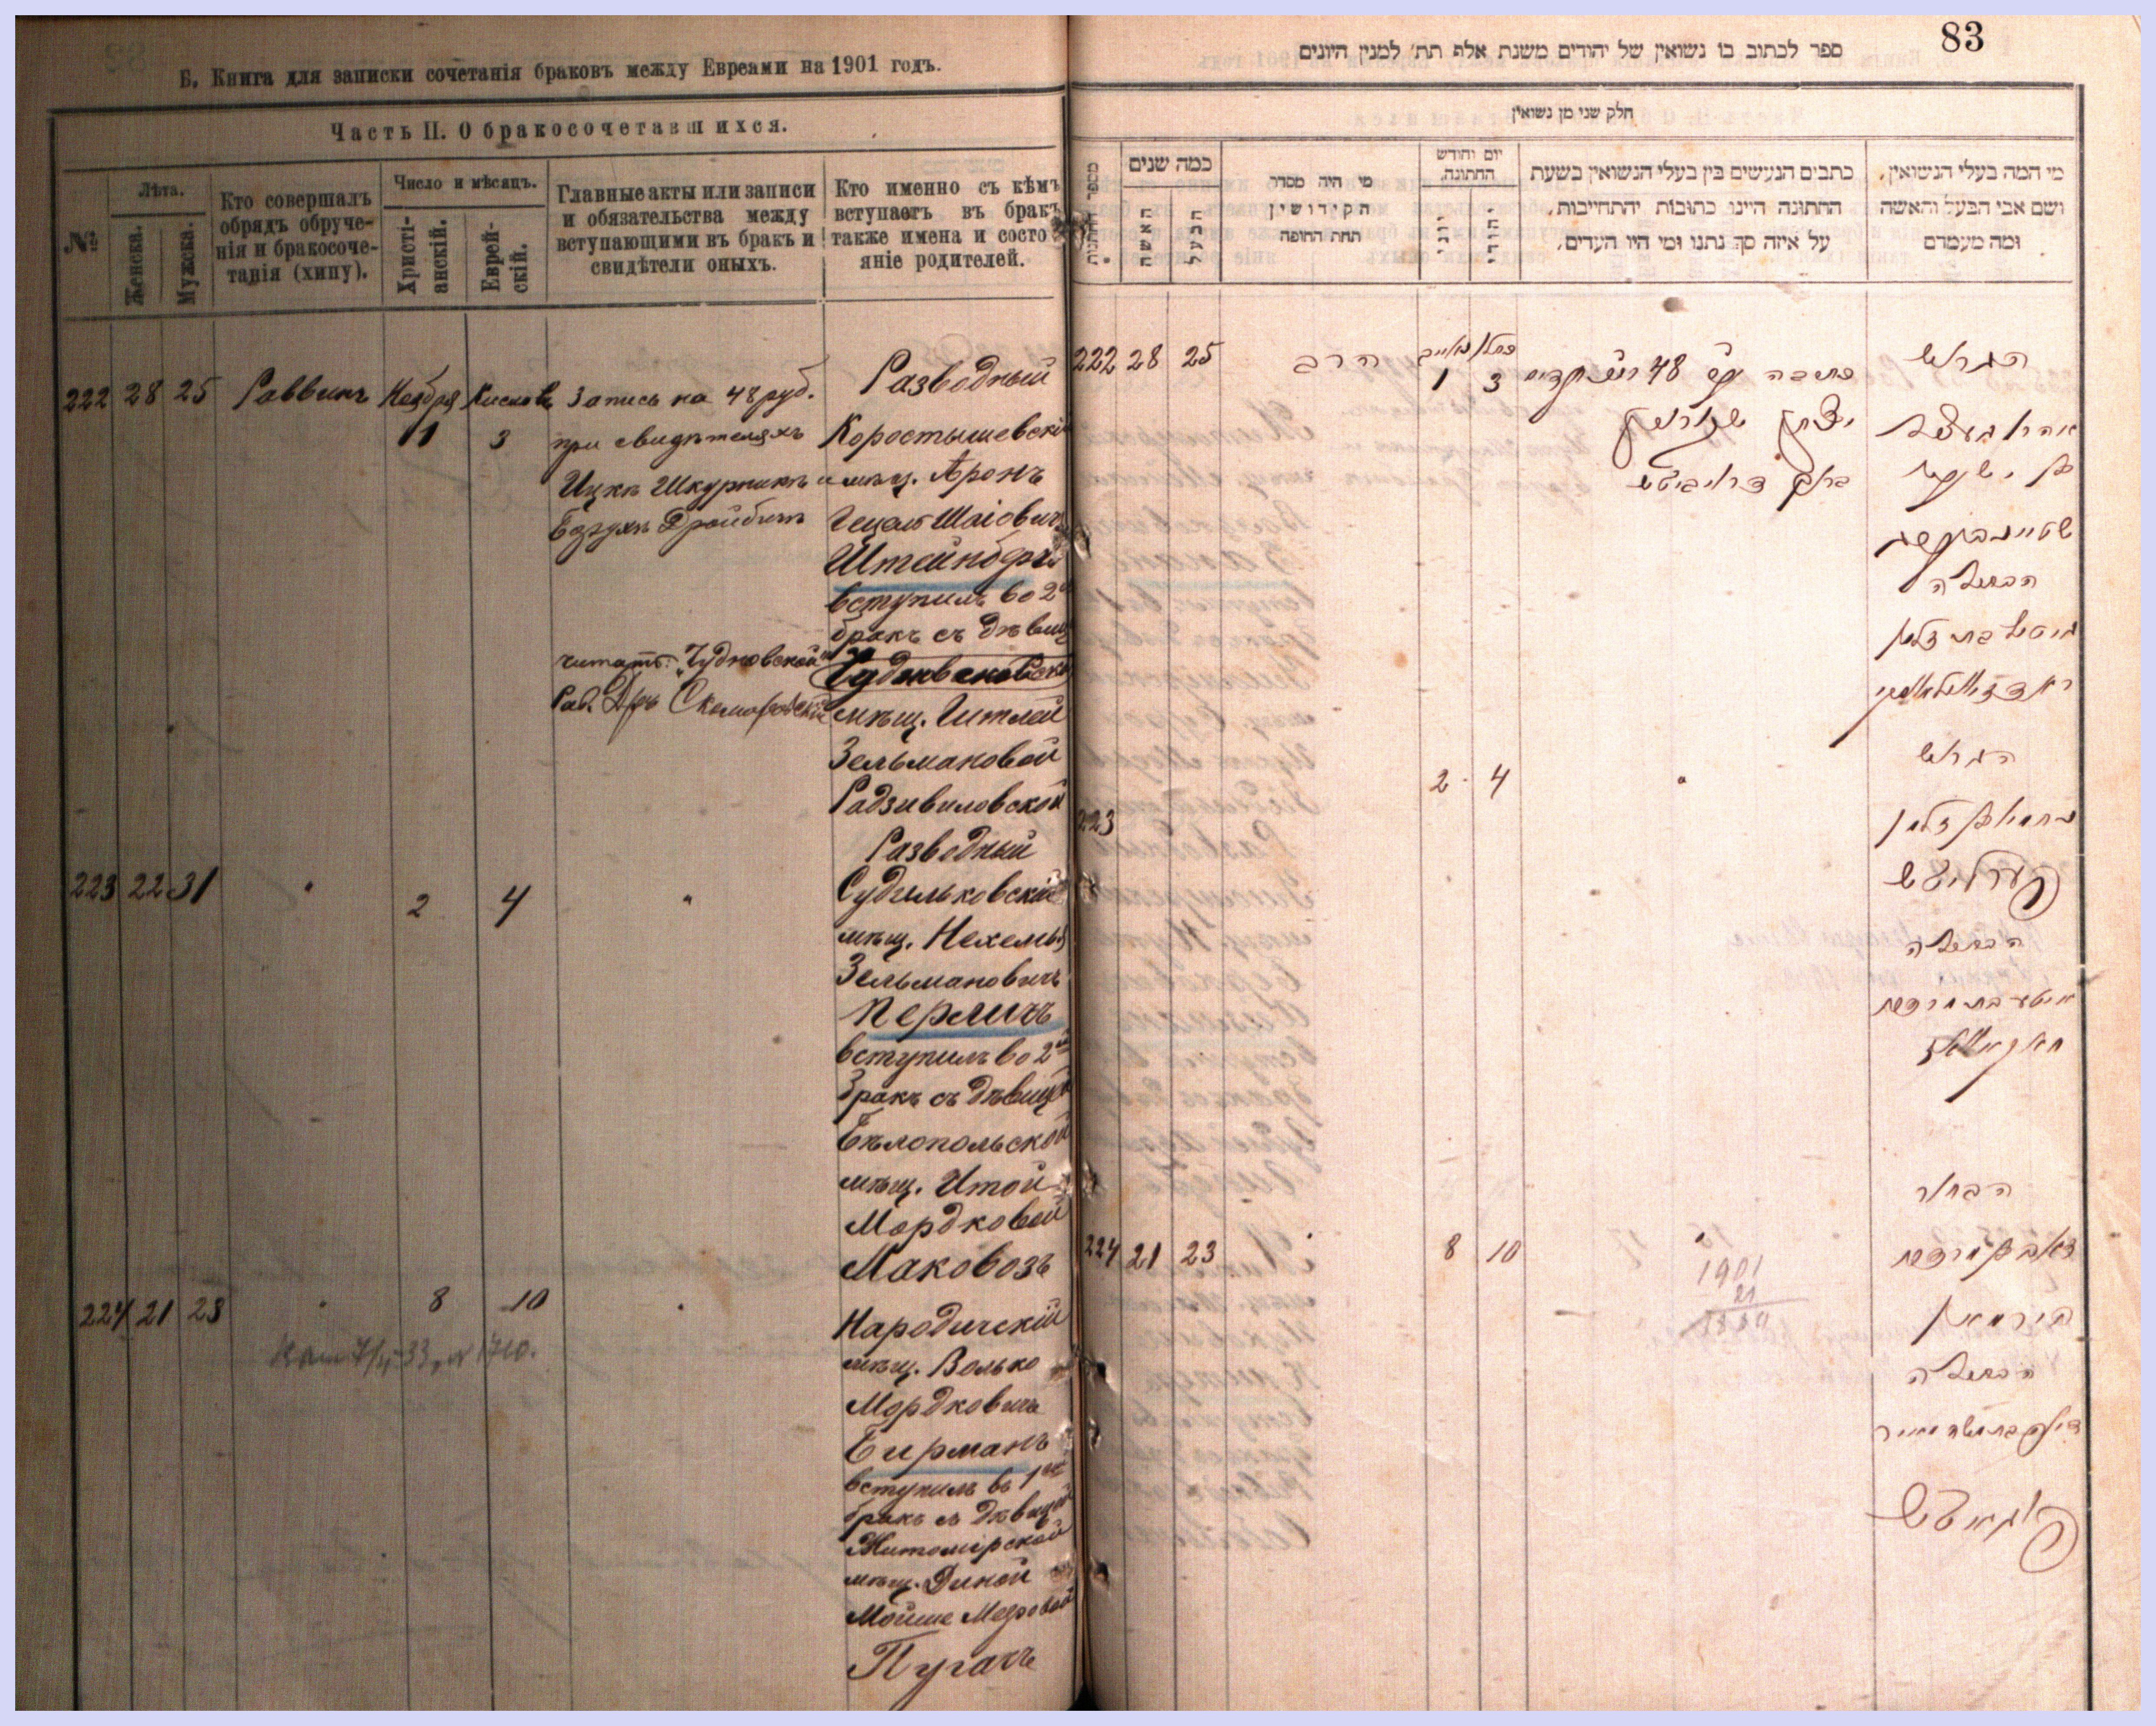 Б. Книга для записки сочетанія браковъ между Евреами на 1901 годъ.
Часть II. О бракосочетавшихся.
№
Лѣта.
Женска.
Мужска.
Кто совершалъ
обрядъ обруче-
нія и бракосоче-
танія (хипу).
Число и мѣсяцъ.
Христі-
анскій.
Еврей-
скій.
Главные акты или записи
и обязательства между
вступающими въ бракъ и
свидѣтели оныхъ.
Кто именно съ кѣмъ
вступаетъ въ бракъ
также имена и состо
яніе родителей.
222 28 25 Раввинъ Ноября 1 Кислова 3
Запись на 48 руб.
при свидѣтеляхъ
Ицкѣ Шкурникъ и
Дройбичъ
читать: "Чудновской"
Раб. Др Скоморовскій
Разводный
Коростышевскій
мѣщ. Аронъ
Гецель Шаіовичъ
Штейнбергъ
вступилъ во 2й
бракъ съ дѣвиц
мѣщ. Гитлей
Зельмановой
Радзивиловской
223 22 31 " 2 4 "
Разводный
Судилковскій
мѣщ. Нехемья
Зельмановичъ
Перличъ
вступилъ во 2й
бракъ съ дѣвицей
Бѣлопольской
мѣщ. Итой
Мордковой
Маковозъ
224 21 23 " 8 10 "
Народичскій
мѣщ. Волько
Мордковичъ
Бирманъ
вступилъ въ 1й
бракъ съ дѣвицей
Житомірской
мѣщ. Диной
Мойше Меровой
Пугачъ
83
ספר לכתוב בו נשואין של יהודים משנת אלף תת׳ למנין היונים
חלק שני מן נשואין
מספר החתונות
כמה שנים
האשה
הבעל
מי היה מסדר
הקידושין
תחת החופה
יום וחודש
החתונה.
יוני
יהודי
כתבים הנעשים בין בעלי הנשואין בשעת
החתונה היינו כתובות והתחייבות,
על איזה סך נתנו ומי היו העדים,
מי המה בעלי הנשואין,
ושם אבי הבעל והאשה
ומה מעמדם
222 28 25 הרב 1 3
48
יצחק
ברוך
הגרוש
בן ישעיה
הבתולה
גיטל בת זלמן
223 2 4 "
הגרוש
נחמיה בן זלמן
פערליטש
הבתולה
איטע בת מרדכי
224 21 23 " 8 10 "
1901
21
1880
הבחור
זאב בן מרדכי
בירמאן
הבתולה
דינה בת משה מאיר
פוגאטש